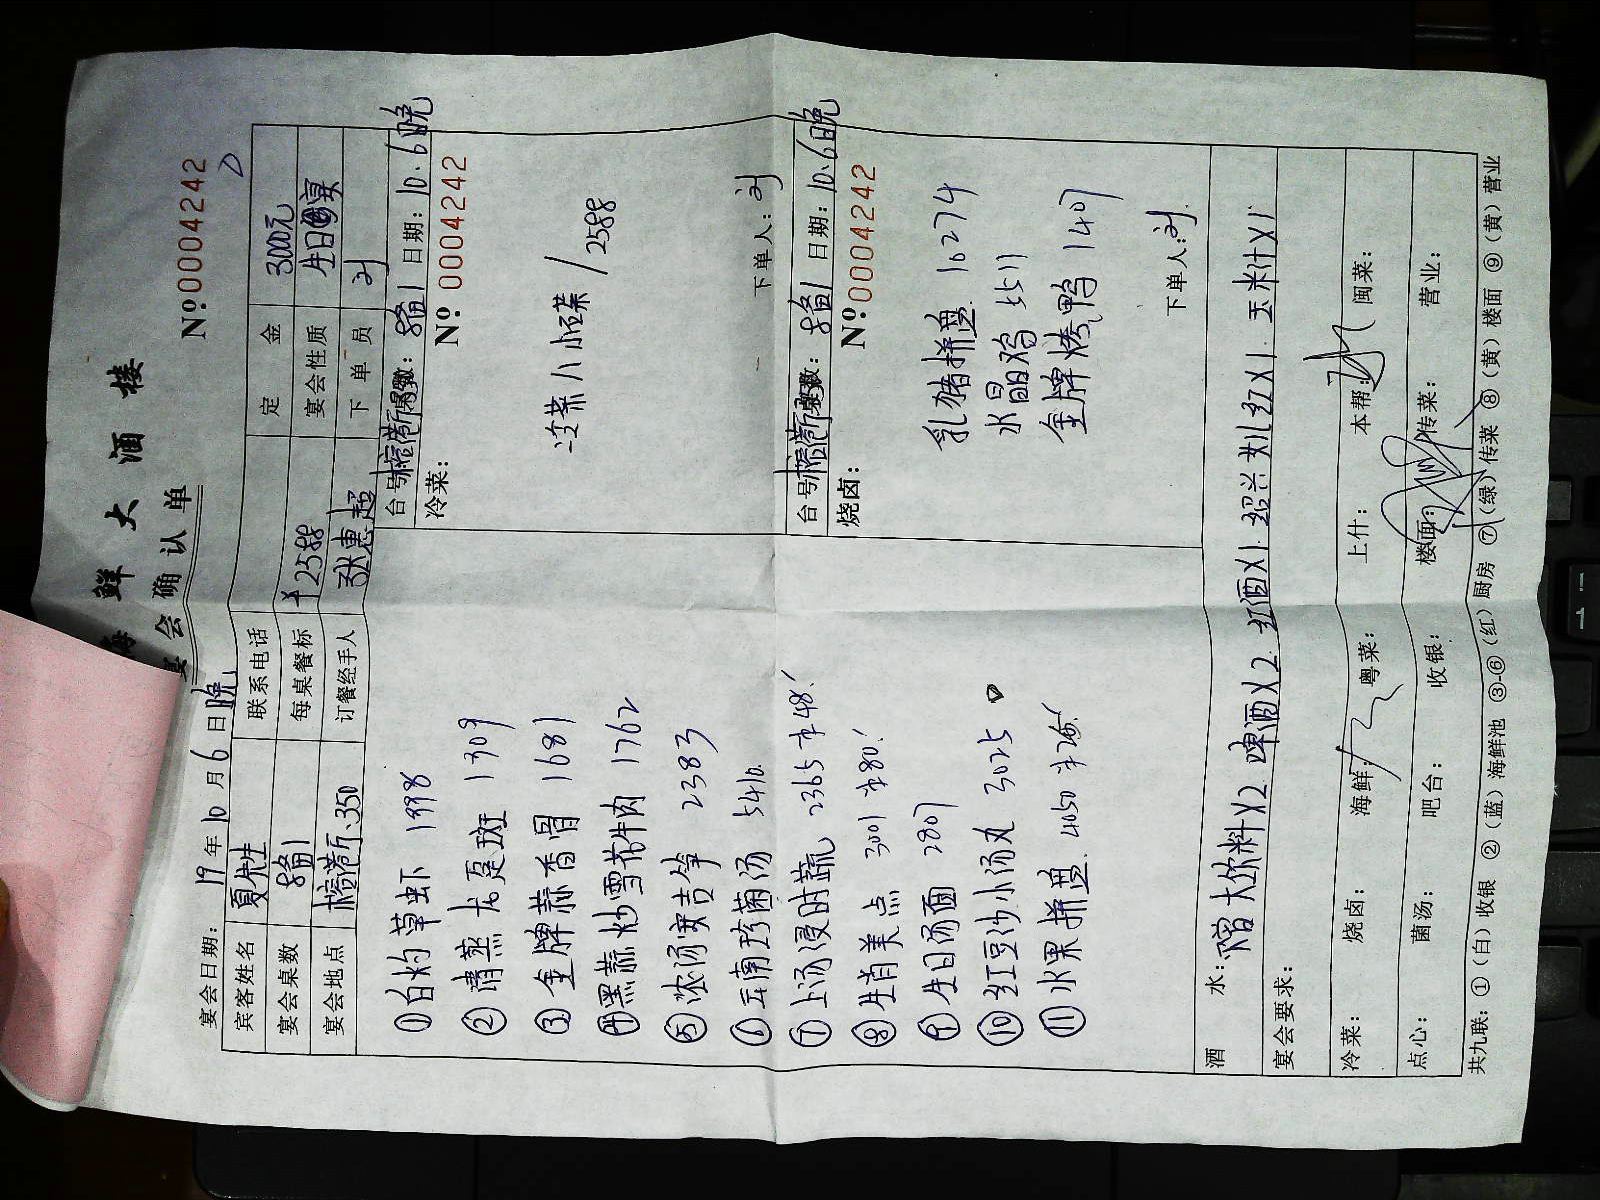 海鲜大酒楼
宴会确认单
№0004242
宴会日期：19年10月6日晚
宾客姓名 夏先生 联系电话 定金 3000元
宴会桌数 8备1 每桌餐标 ¥2588 宴会性质 生日宴
宴会地点 榕港厅、350 订餐经手人 张惠超 下单员 刘
①白灼草虾 1998
②清蒸龙趸斑 1309
③金牌蒜香骨 1681
④黑蒜炒雪花牛肉 1762
⑤浓汤实吉笋 2383
⑥云南珍菌汤 5410.
⑦上汤浸时蔬 2365 半48!
⑧生肖美点 3001 半80!
⑨生日汤面 2807
⑩红豆沙小汤丸 3025
⑪水果拼盘 4050
台号 榕港厅 桌数：8备1 日期：10.6晚
冷菜： № 0004242
凉菜八小碟 / 2588
下单人：刘
台号 榕港厅 桌数：8备1 日期：10.6晚
烧卤： №0004242
乳猪拼盘 10274
水晶鸡
金牌烤鸭 1407
下单人：刘
酒水：大饮料X2 啤酒X2 红酒X1 绍兴女儿红X1 玉米汁X1
宴会要求：
冷菜： 烧卤： 海鲜： 粤菜： 上什： 本帮： 闽菜：
点心： 菌汤： 吧台： 收银： 楼面： 传菜： 营业：
共九联：①（白）收银 ②（蓝）海鲜池 ③-⑥（红）厨房 ⑦（绿）传菜 ⑧（黄）楼面 ⑨（黄）营业